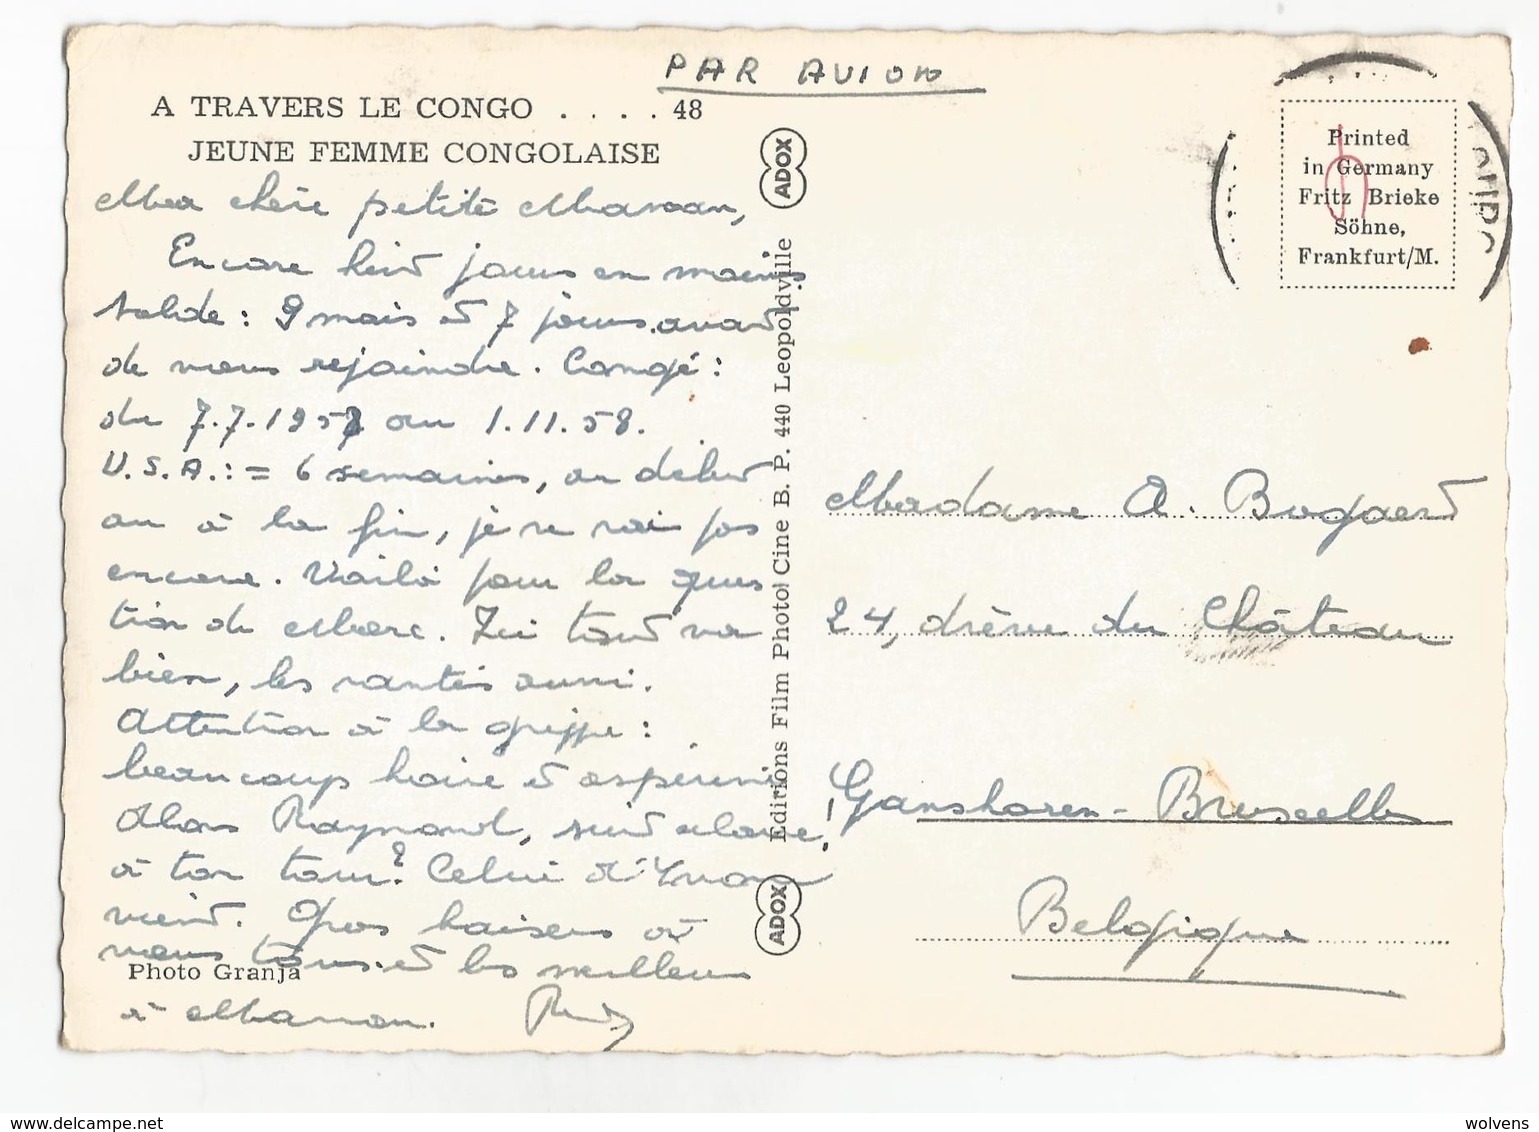 PAR AVION
A TRAVERS LE CONGO . . . . 48
JEUNE FEMME CONGOLAISE
Ma chère petite Maman,
Encore huit jours en moins
solde : 9 mois et 7 jours avant
de vous rejoindre. Congé :
du 7.7.1958 au 1.11.58.
U.S.A. : = 6 semaines, au début
ou à la fin, je ne sais pas
encore. Voilà pour la ques
tion de Marc. Ici tout va
bien, les santés aussi.
Attention à la grippe :
beaucoup boire et aspirine
Alors Raymond, suis alone,
à ton tour ? Celui d'Yvon
vient. Gros baisers à
vous tous et les meilleurs
à Manon.
Photo Granja
ADOX
Editions Film Photo Cine B. P. 440 Leopoldville
ADOX
Printed
in Germany
Fritz Brieke
Söhne,
Frankfurt/M.
Madame A. Bogaert
24, drève du Château
Ganshoren - Bruxelles
Belgique
wolvens